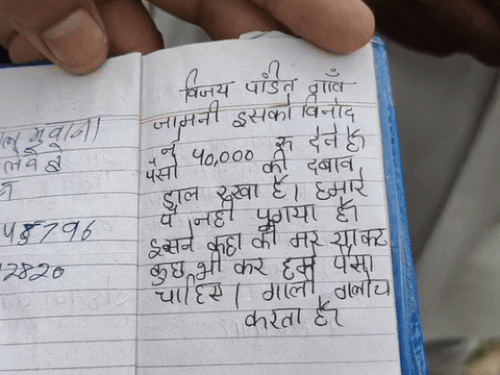 विजय पंडित गाँव
जामनी इसको विनोद
ने 50,000 रु देने है।
पैसो की दबाव
डाल रखा है। हमारे
पे नही पुगया है।
इसने कहा की मर या कट
कुछ भी कर हमे पैसा
चाहिए। गाली गलोच
करता है।
5796
2820